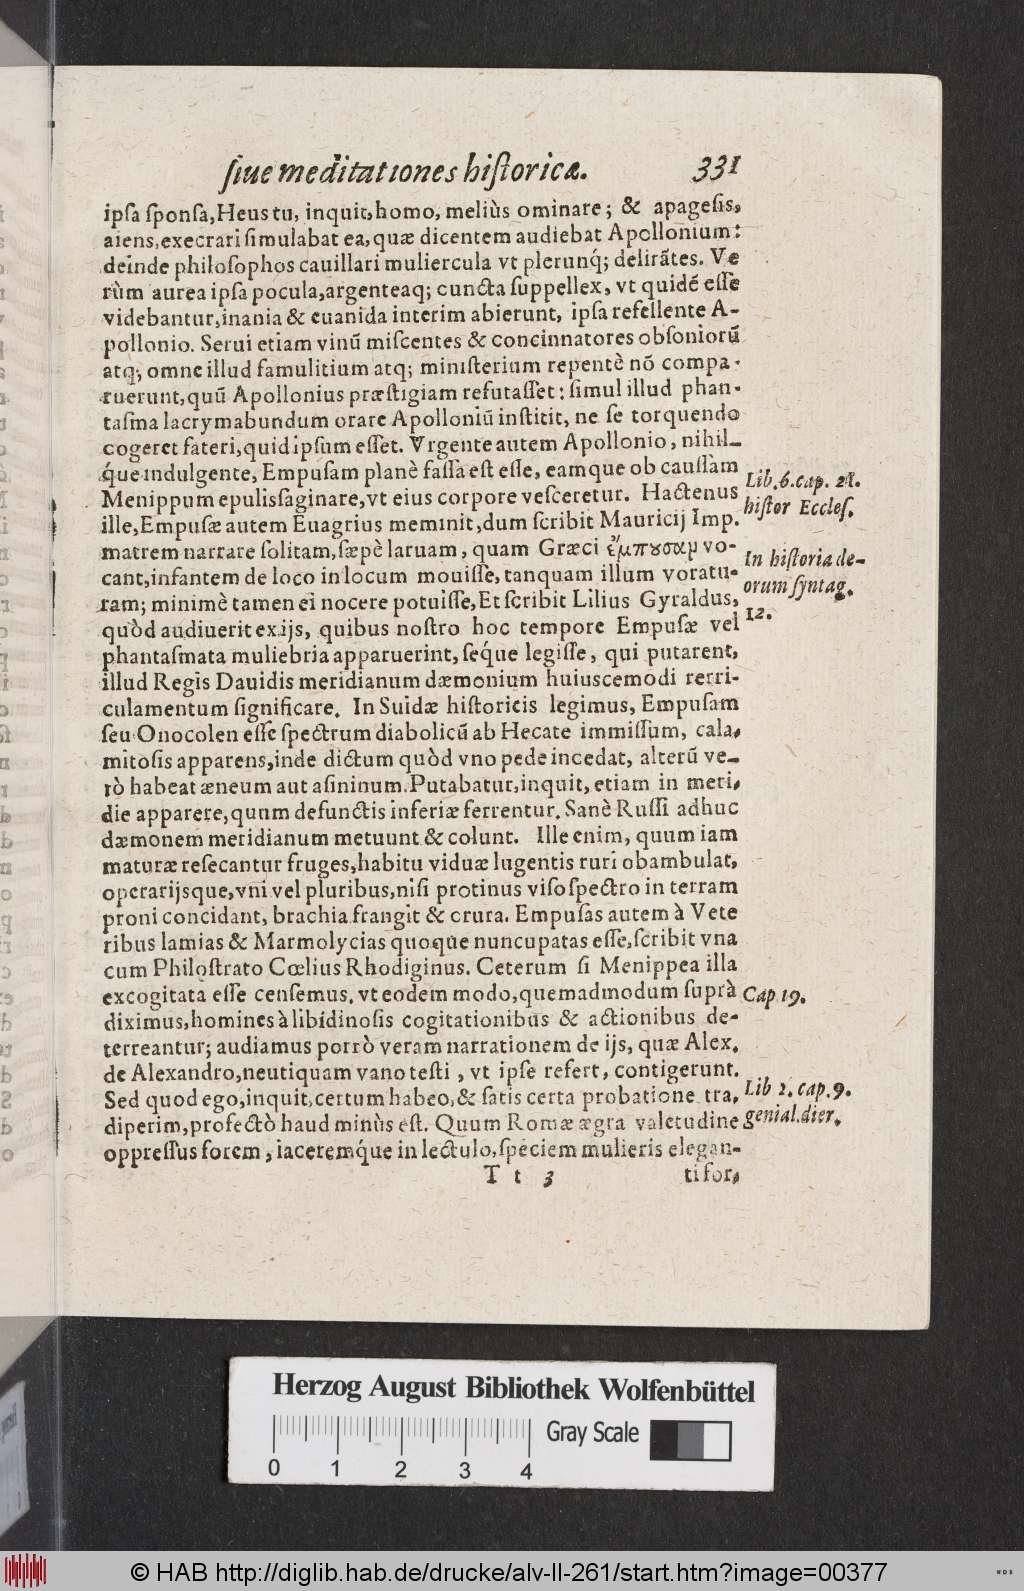 ſiue meditationes hiſtoricæ. 331
ipſa ſponſa, Heus tu, inquit, homo, meliùs ominare; & apageſis,
aiens, execrari ſimulabat ea, quæ dicentem audiebat Apollonium:
deinde philoſophos cauillari muliercula vt plerunq́; delirãtes. Ve
rùm aurea ipſa pocula, argenteaq; cuncta ſuppellex, vt quidẽ eſſe
videbantur, inania & euanida interim abierunt, ipſa refellente A-
pollonio. Serui etiam vinũ miſcentes & concinnatores obſoniorũ
atq; omne illud famulitium atq; miniſterium repentè nõ compa-
ruerunt, quũ Apollonius præſtigiam refutaſſet: ſimul illud phan-
taſma lacrymabundum orare Apolloniũ inſtitit, ne ſe torquendo
cogeret fateri, quid ipſum eſſet. Vrgente autem Apollonio, nihil-
q́ue indulgente, Empuſam planè faſſa eſt eſſe, eamque ob cauſſam
Menippum epulis ſaginare, vt eius corpore veſceretur. Hactenus
ille, Empuſæ autem Euagrius meminit, dum ſcribit Mauricij Imp.
matrem narrare ſolitam, ſæpè laruam, quam Græci ἔμπουσαμ vo-
cant, infantem de loco in locum mouiſſe, tanquam illum voratu-
ram; minimè tamen ei nocere potuiſſe, Et ſcribit Lilius Gyraldus,
quòd audiuerit ex ijs, quibus noſtro hoc tempore Empuſæ vel
phantaſmata muliebria apparuerint, ſeq́ue legiſſe, qui putarent,
illud Regis Dauidis meridianum dæmonium huiuscemodi terri-
culamentum ſignificare. In Suidæ hiſtoricis legimus, Empuſam
ſeu Onocolen eſſe ſpectrum diabolicũ ab Hecate immiſſum, cala-
mitoſis apparens, inde dictum quòd vno pede incedat, alterũ ve-
rò habeat æneum aut aſininum. Putabatur, inquit, etiam in meri-
die apparere, quum defunctis inferiæ ferrentur. Sanè Ruſſi adhuc
dæmonem meridianum metuunt & colunt. Ille enim, quum iam
maturæ reſecantur fruges, habitu viduæ lugentis ruri obambulat,
operarijsque, vni vel pluribus, niſi protinus viſo ſpectro in terram
proni concidant, brachia frangit & crura. Empuſas autem à Vete
ribus lamias & Marmolycias quoque nuncupatas eſſe, ſcribit vna
cum Philoſtrato Cœlius Rhodiginus. Ceterum ſi Menippea illa
excogitata eſſe cenſemus, vt eodem modo, quemadmodum ſuprà
diximus, homines à libidinoſis cogitationibus & actionibus de-
terreantur; audiamus porrò veram narrationem de ijs, quæ Alex.
de Alexandro, neutiquam vano teſti, vt ipſe refert, contigerunt.
Sed quod ego, inquit, certum habeo, & ſatis certa probatione tra-
diperim, profectò haud minùs eſt. Quum Romæ ægra valetudine
oppreſſus forem, iaceremq́ue in lectulo, ſpeciem mulieris elegan-
T t 3 ti for-
Lib. 6. cap. 21.
hiſtor Eccleſ.
In hiſtoria de-
orum ſyntag.
12.
Cap 19.
Lib 2. cap. 9.
genial. dier.
Herzog August Bibliothek Wolfenbüttel
Gray Scale
0 1 2 3 4
© HAB http://diglib.hab.de/drucke/alv-ll-261/start.htm?image=00377